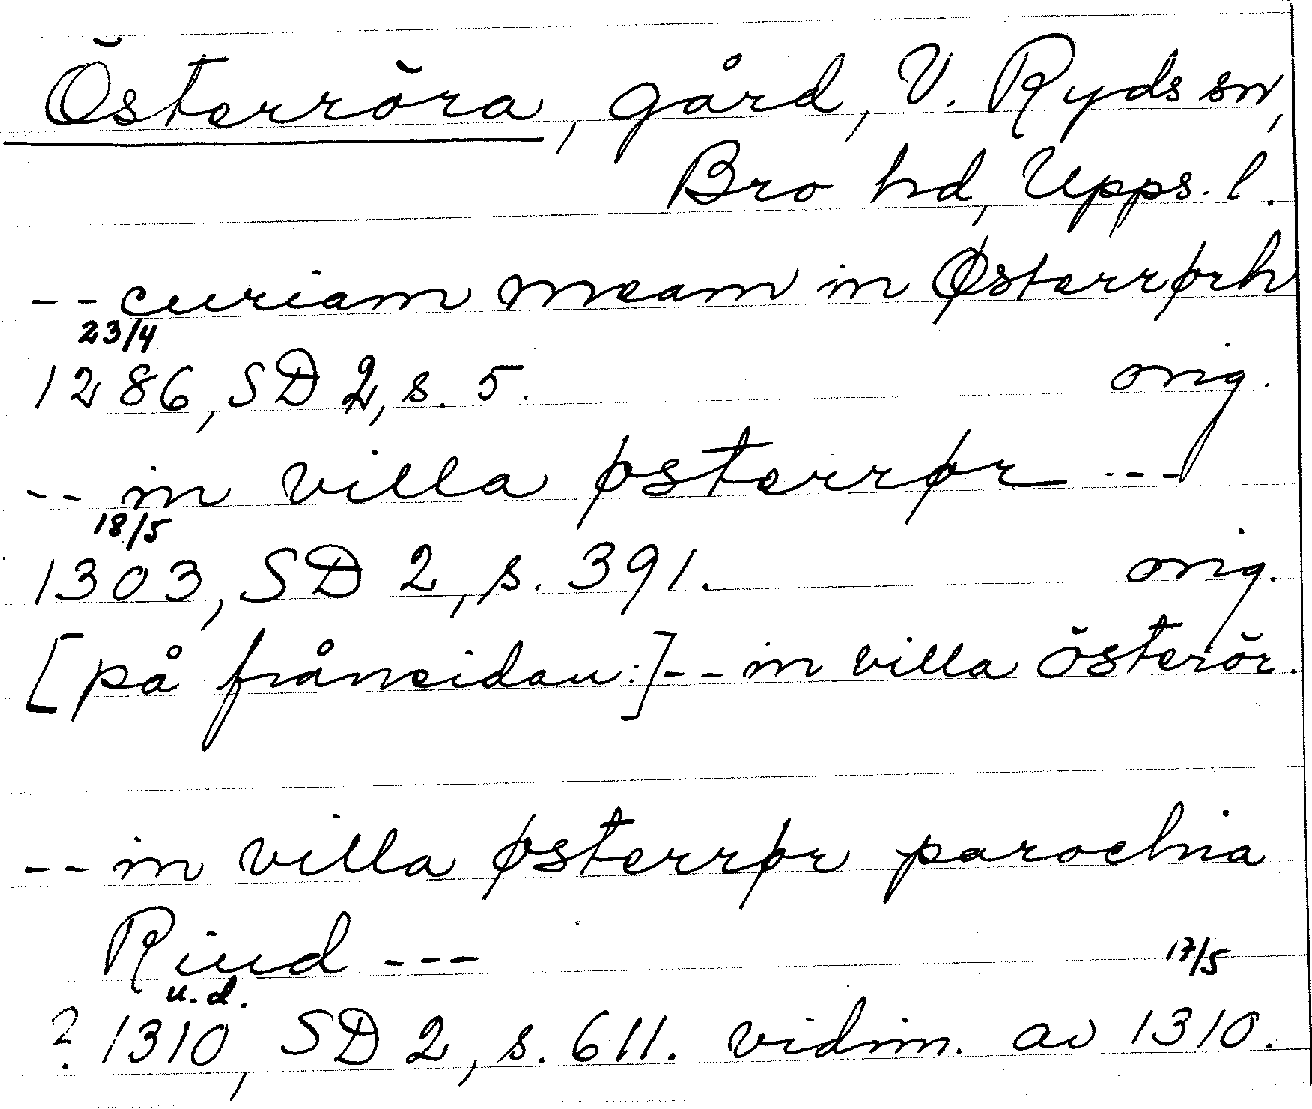 Österröra, gård, V. Ryds sn,
Bro hd, Upps. l.
-- curiam meam in Østerrørh
23/4
1286, SD 2, s. 5. orig.
-- in villa østerrør ---
18/5
1303, SD 2, s. 391. orig.
[på frånsidan:] -- in villa österör.
-- in villa østerrør parochia
Riud ---
u. d. 17/5
? 1310, SD 2, s. 611. vidim. av 1310.